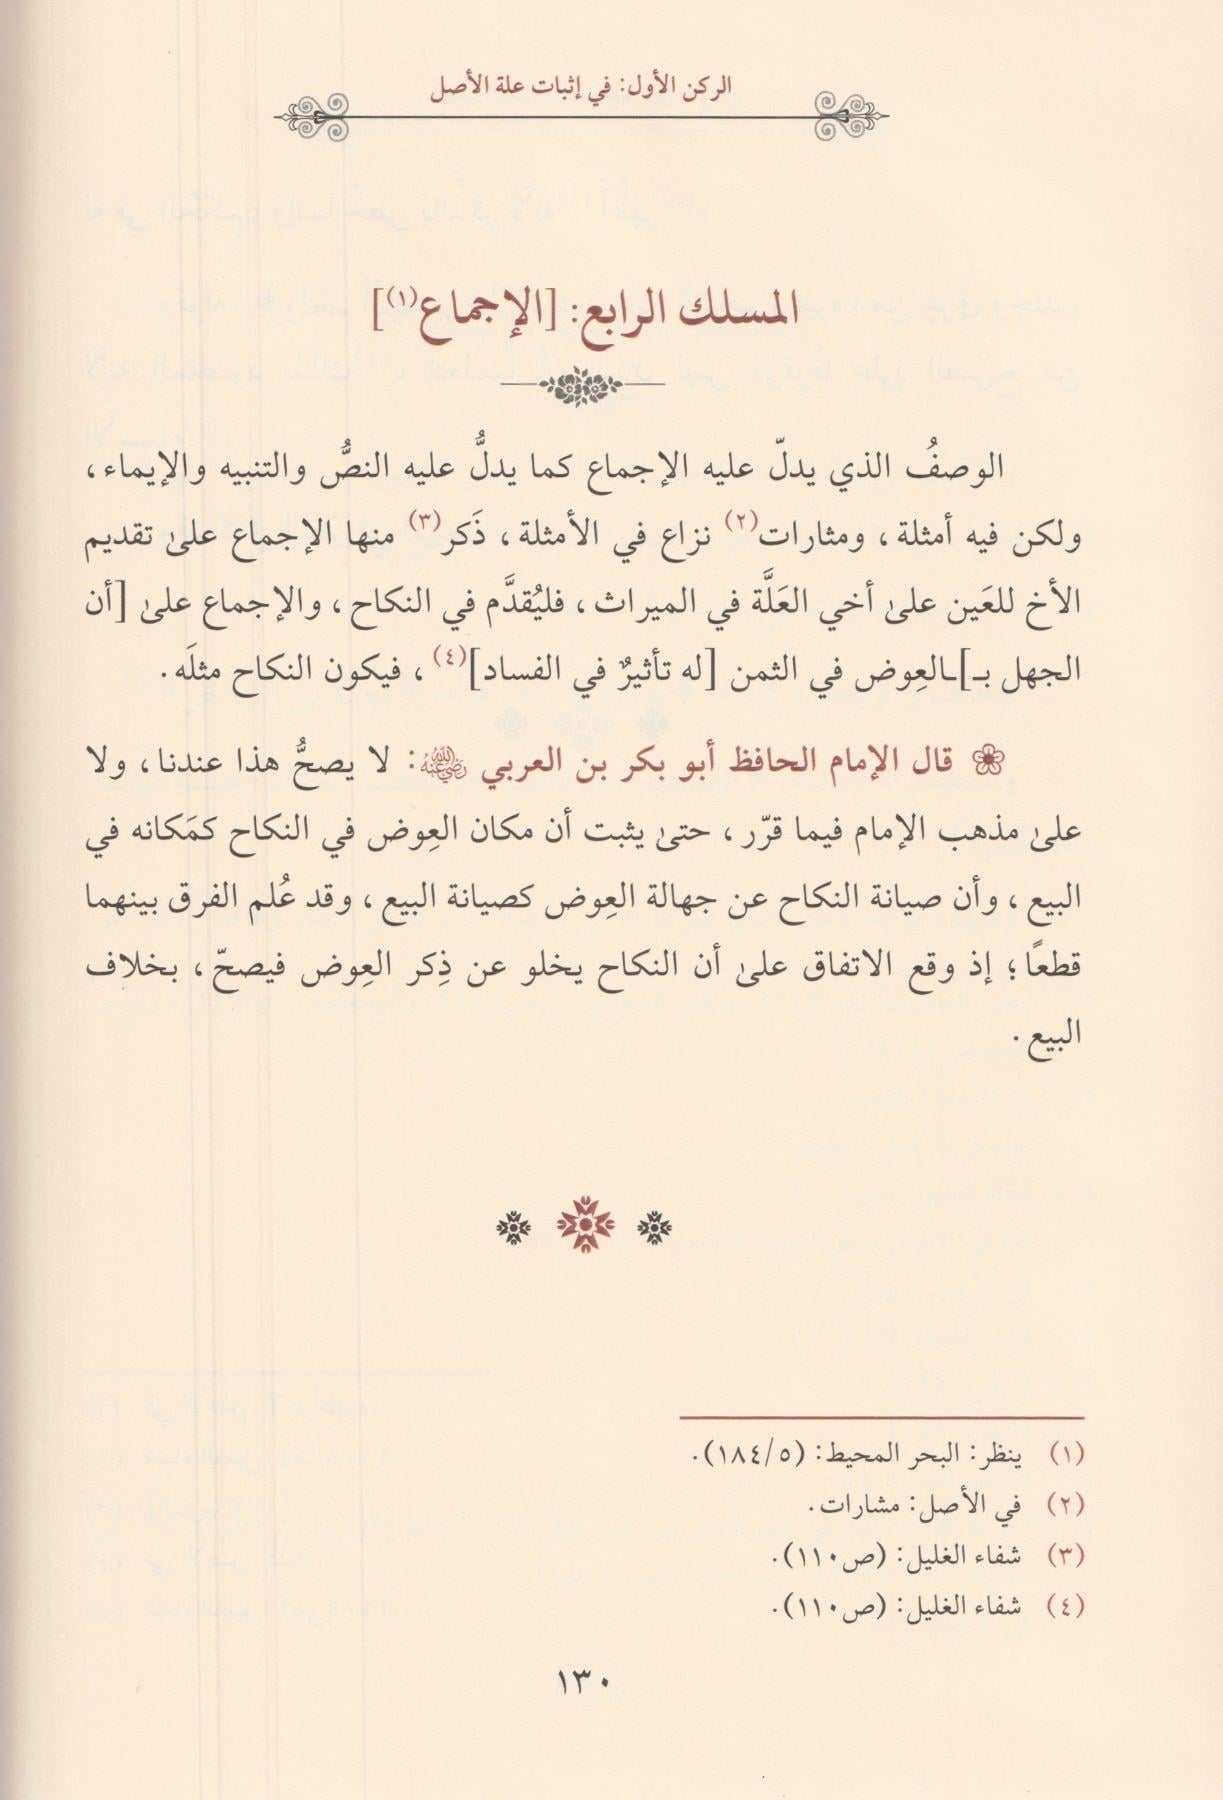 الركن الأول: في إثبات علة الأصل
المسلك الرابع: [الإجماع(١)]
الوصفُ الذي يدلّ عليه الإجماع كما يدلُّ عليه النصُّ والتنبيه والإيماء،
ولكن فيه أمثلة، ومثارات(٢) نزاع في الأمثلة، ذَكر(٣) منها الإجماع علىٰ تقديم
الأخ للعَين علىٰ أخي العَلَّة في الميراث، فليُقدَّم في النكاح، والإجماع علىٰ [أن
الجهل بـ]ـالعِوض في الثمن [له تأثيرٌ في الفساد](٤)، فيكون النكاح مثلَه.
قال الإمام الحافظ أبو بكر بن العربي رضي الله عنه: لا يصحُّ هذا عندنا، ولا
علىٰ مذهب الإمام فيما قرّر، حتىٰ يثبت أن مكان العِوض في النكاح كمَكانه في
البيع، وأن صيانة النكاح عن جهالة العِوض كصيانة البيع، وقد عُلم الفرق بينهما
قطعًا؛ إذ وقع الاتفاق علىٰ أن النكاح يخلو عن ذِكر العِوض فيصحّ، بخلاف
البيع.
(١) ينظر: البحر المحيط: (١٨٤/٥).
(٢) في الأصل: مشارات.
(٣) شفاء الغليل: (ص١١٠).
(٤) شفاء الغليل: (ص١١٠).
١٣٠